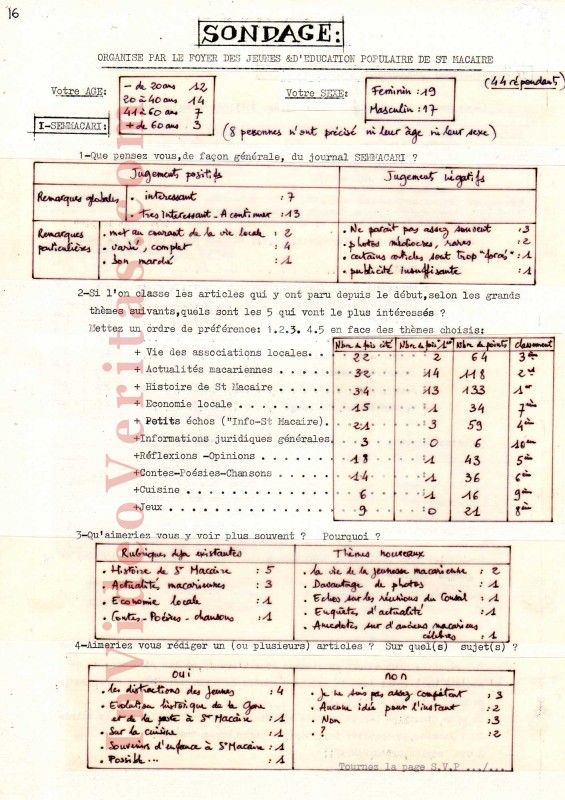 16
SONDAGE:
ORGANISE PAR LE FOYER DES JEUNES &D'EDUCATION POPULAIRE DE ST MACAIRE
(44 répondants)
Votre AGE:
- de 20 ans 12
20 à 40 ans 14
41 à 60 ans 7
+ de 60 ans 3
Votre SEXE:
Feminin : 19
Masculin : 17
I-SEMMACARI:
(8 personnes n'ont précisé ni leur âge ni leur sexe)
1-Que pensez vous,de façon générale, du journal SEMMACARI ?
Jugements positifs
Jugements négatifs
Remarques globales
. interessant : 7
. Tres Interessant - A continuer : 13
Remarques particulières
. met au courant de la vie locale : 2
. varié, complet : 4
. Bon marché : 1
. Ne parait pas assez souvent : 3
. photos médiocres, rares : 2
. certains articles sont trop "forcés" : 1
. publicité insuffisante : 1
2-Si l'on classe les articles qui y ont paru depuis le début,selon les grands
thèmes suivants,quels sont les 5 qui vont le plus intéressés ?
Mettez un ordre de préférence: 1.2.3. 4.5 en face des thèmes choisis:
Nbre de fois cité Nbre de fois 1er Nbre de points classement
+ Vie des associations locales.. 22 2 64 3è
+ Actualités macariennes . . . . 32 14 118 2è
+ Histoire de St Macaire . . . . 34 13 133 1er
+ Economie locale . . . . . . . 15 1 34 7è
+ Petits échos ("Info-St Macaire). 21 3 59 4è
+Informations juridiques générales. 3 0 6 10è
+Réflexions -Opinions . . . . . . 18 1 43 5è
+Contes-Poésies-Chansons . . . . 14 1 36 6è
+Cuisine . . . . . . . . . . . . 6 1 16 9è
+Jeux . . . . . . . . . . . . . 9 0 21 8è
3-Qu'aimeriez vous y voir plus souvent ? Pourquoi ?
Rubriques deja existantes
. Histoire de St Macaire : 5
. Actualités macariennes : 3
. Economie locale : 1
. Contes - Poésies - chansons : 1
Thèmes nouveaux
. la vie de la jeunesse macarienne : 2
. Davantage de photos : 1
. Echos sur les réunions du Conseil : 1
. Enquêtes d'actualité : 1
. Anecdotes sur d'anciens macariens
célèbres : 1
4-Aimeriez vous rédiger un (ou plusieurs) articles ? Sur quel(s) sujet(s) ?
oui
. les distractions des jeunes : 4
. Evolution historique de la Gare
et de la poste à St Macaire : 1
. Sur la cuisine : 1
. Souvenirs d'enfance à St Macaire : 1
. Possible... : 1
non
. Je ne suis pas assez compétent : 3
. Aucune idée pour l'instant : 2
. Non : 3
. ? : 2
Tournez la page S.V.P .../...
InVideoVeritas.com